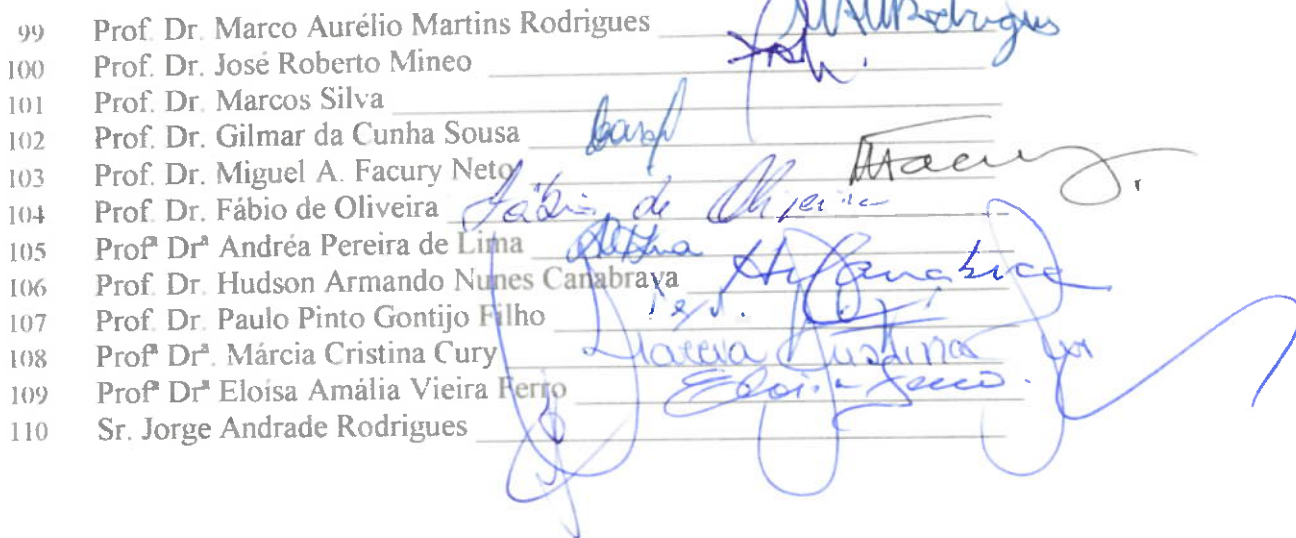 99 Prof. Dr. Marco Aurélio Martins Rodrigues MAMRodrigues
100 Prof. Dr. José Roberto Mineo
101 Prof. Dr. Marcos Silva
102 Prof. Dr. Gilmar da Cunha Sousa
103 Prof. Dr. Miguel A. Facury Neto
104 Prof. Dr. Fábio de Oliveira Fábio de Oliveira
105 Profª Drª Andréa Pereira de Lima
106 Prof. Dr. Hudson Armando Nunes Canabrava
107 Prof. Dr. Paulo Pinto Gontijo Filho
108 Profª Drª. Márcia Cristina Cury Márcia Cristina
109 Profª Drª Eloísa Amália Vieira Ferro Eloísa Ferro.
110 Sr. Jorge Andrade Rodrigues